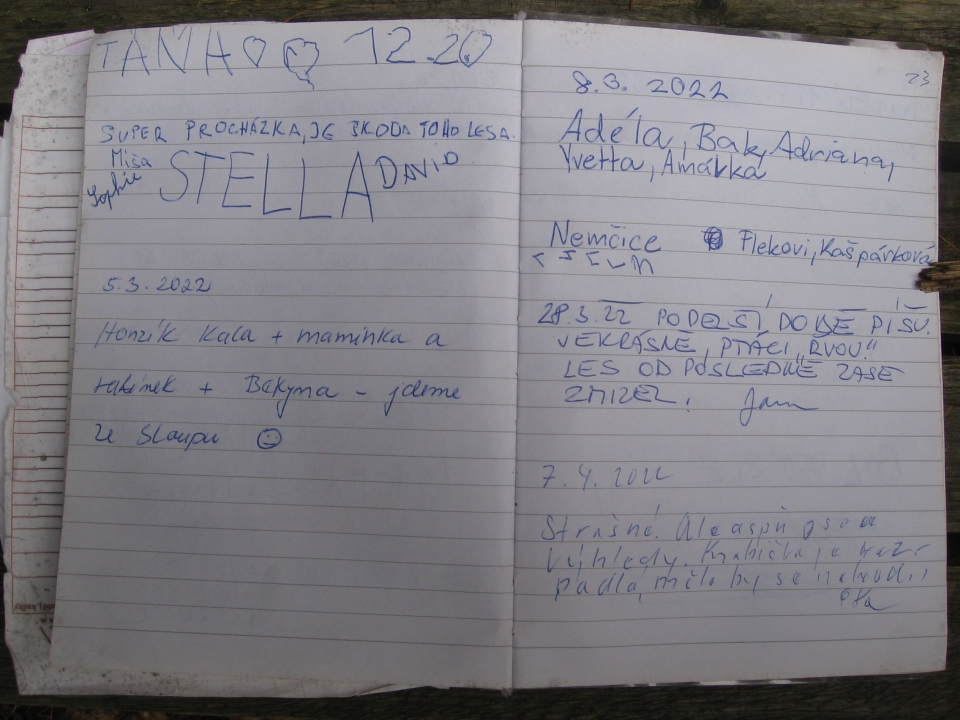 TÁŇA 12.20
SUPER PROCHÁZKA, JE ŠKODA TOHO LESA.
Míša
Sophie
STELLA DAVID
5.3.2022
Honzík Kala + maminka a
tatínek + Bekyma - jdeme
ze Sloupu
23
8.3. 2022
Adéla, Bak, Adriana,
Yvetta, Amárka
Nemčice Flekovi, Kašpárková
28.3.22 PODEZŠÍ, DOBĚ PÍŠU.
VEKRÁSNĚ, PTÁCI „ŘVOU."
LES OD POSLEDNĚ ZASE
ZMIZEL. Jan
7.4.2022
Strašné. Ale aspň jsou
výhledy. Krabička je roz-
padlá, mělo by se